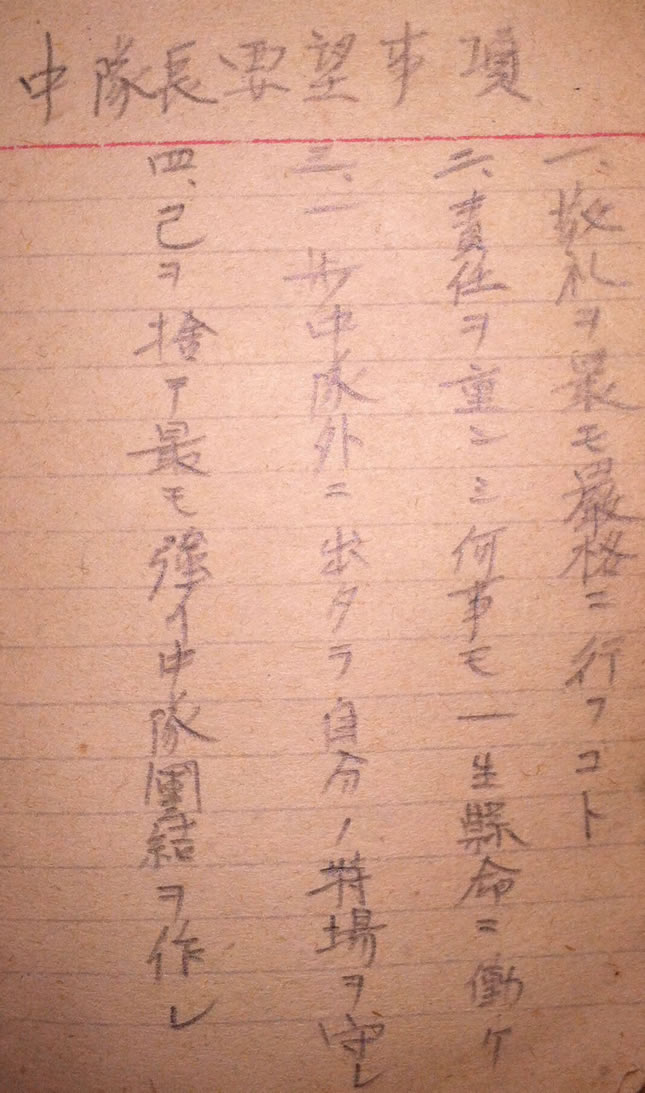 中隊長要望事項
一、敬礼ヲ最モ厳格ニ行フコト
二、責任ヲ重ンミ何事モ一生縣命ニ働ケ
三、一歩中隊外ニ出タラ自分ノ持場ヲ守レ
四、己ヲ捨テ最モ強イ中隊團結ヲ作レ